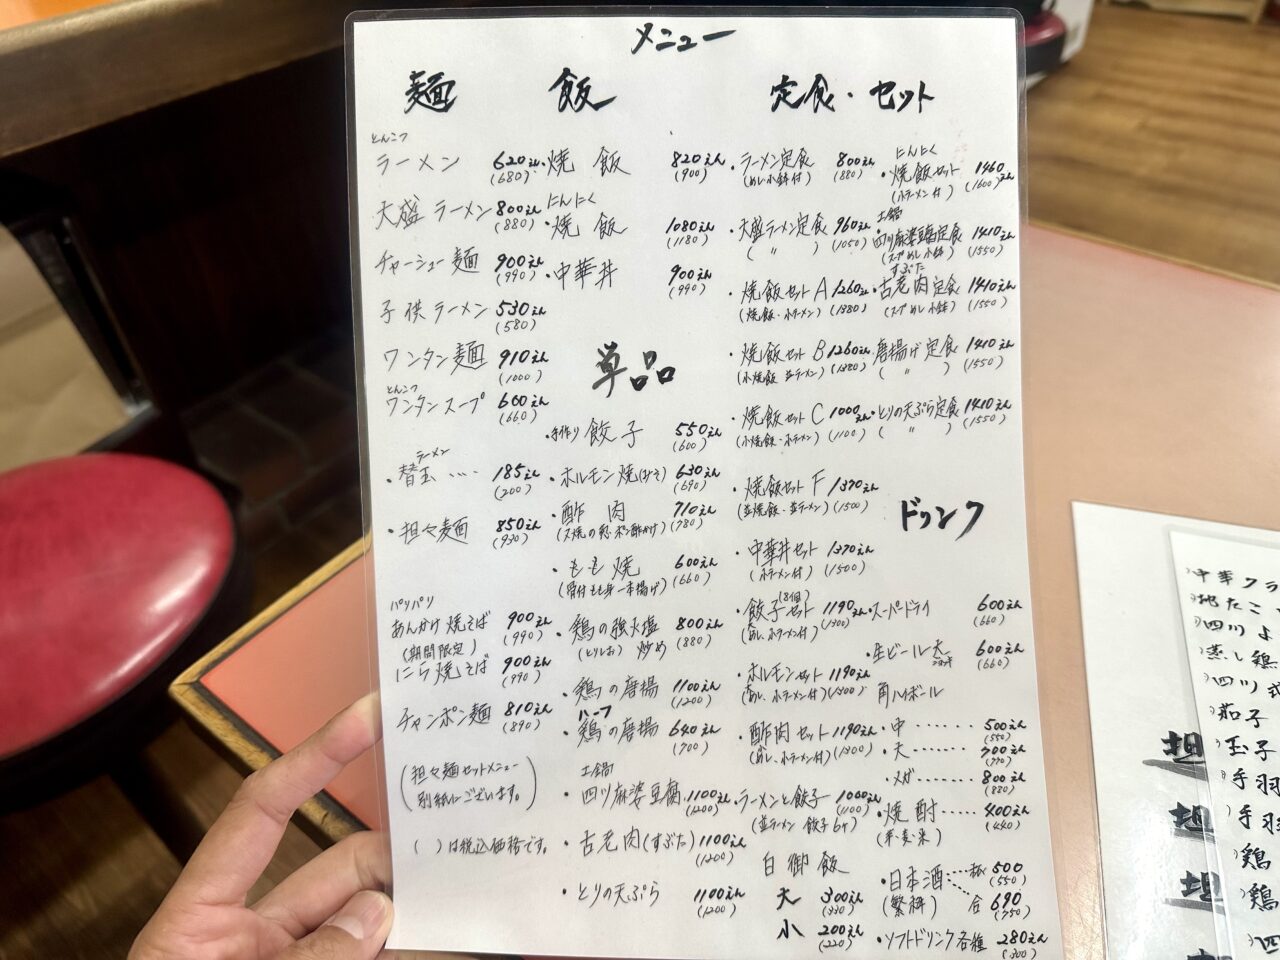 メニュー
麺
とんこつ
ラーメン 620えん (680)
大盛 ラーメン 800えん (880)
チャーシュー麺 900えん (990)
子供ラーメン 530えん (580)
ワンタン麺 910えん (1000)
とんこつ
ワンタンスープ 600えん (660)
ラーメン
・替玉 ・・・・ 185えん (200)
・担々麺 850えん (930)
パリパリ
あんかけ焼そば 900えん (990)
(期間限定)
にら焼そば 900えん (990)
チャンポン麺 810えん (890)
(担々麺セットメニュー
別紙にございます。)
( )は税込価格です。
飯
・焼飯 820えん (900)
にんにく
・焼飯 1080えん (1180)
・中華丼 900えん (990)
単品
・手作り 餃子 550えん (600)
・ホルモン焼(みそ) 630えん (690)
・酢肉 710えん (780)
・もも焼 600えん (660)
(骨付もも身一本揚げ)
・鶏の強火塩炒め 800えん (880)
(とりしお)
・鶏の唐揚 1100えん (1200)
ハーフ
・鶏の唐揚 640えん (700)
土鍋
・四川麻婆豆腐 1100えん (1200)
・古老肉(すぶた) 1100えん (1200)
・とりの天ぷら 1100えん (1200)
定食・セット
・ラーメン定食 800えん
(めし小鉢付) (880)
・大盛ラーメン定食 960えん
( 〃 ) (1050)
・焼飯セットA 1260えん
(焼飯・小ラーメン) (1380)
・焼飯セットB 1260えん
(小焼飯 並ラーメン) (1380)
・焼飯セットC 1000えん
(小焼飯・小ラーメン) (1100)
・焼飯セットF 1370えん
(並焼飯・並ラーメン) (1500)
・中華丼セット 1370えん
(小ラーメン付) (1500)
・餃子(8個)セット 1190えん
(めし、小ラーメン付) (1300)
・ホルモンセット 1190えん
(めし、小ラーメン付) (1300)
・酢肉セット 1190えん
(めし、小ラーメン付) (1300)
・ラーメンと餃子 1000えん
(並ラーメン 餃子6ケ) (1100)
白御飯
大 300えん (330)
小 200えん (220)
にんにく
・焼飯セット 1460えん
(小ラーメン付) (1600)
土鍋
四川麻婆豆腐定食 1410えん
(スープ めし 小鉢) (1550)
すぶた
・古老肉定食 1410えん
(スープ めし 小鉢) (1550)
・唐揚げ定食 1410えん
( 〃 ) (1550)
・とりの天ぷら定食 1410えん
( 〃 ) (1550)
ドリンク
・スーパードライ 600えん (660)
・生ビール大 600えん (660)
角ハイボール
・中 ・・・・・・ 500えん (550)
・大 ・・・・・・ 700えん (770)
・メガ ・・・・・・ 800えん (880)
・焼酎 ・・・・ 400えん (440)
(芋・麦・米)
・日本酒 ・・・ 500 (550)
(繁桝) 合 690 (750)
・ソフトドリンク各種 280えん (300)
中華クラ
地たこ
四川よ
蒸し鶏
四川式
茄子
玉子
手羽
手羽
鶏
鶏
四
担
担
担
担